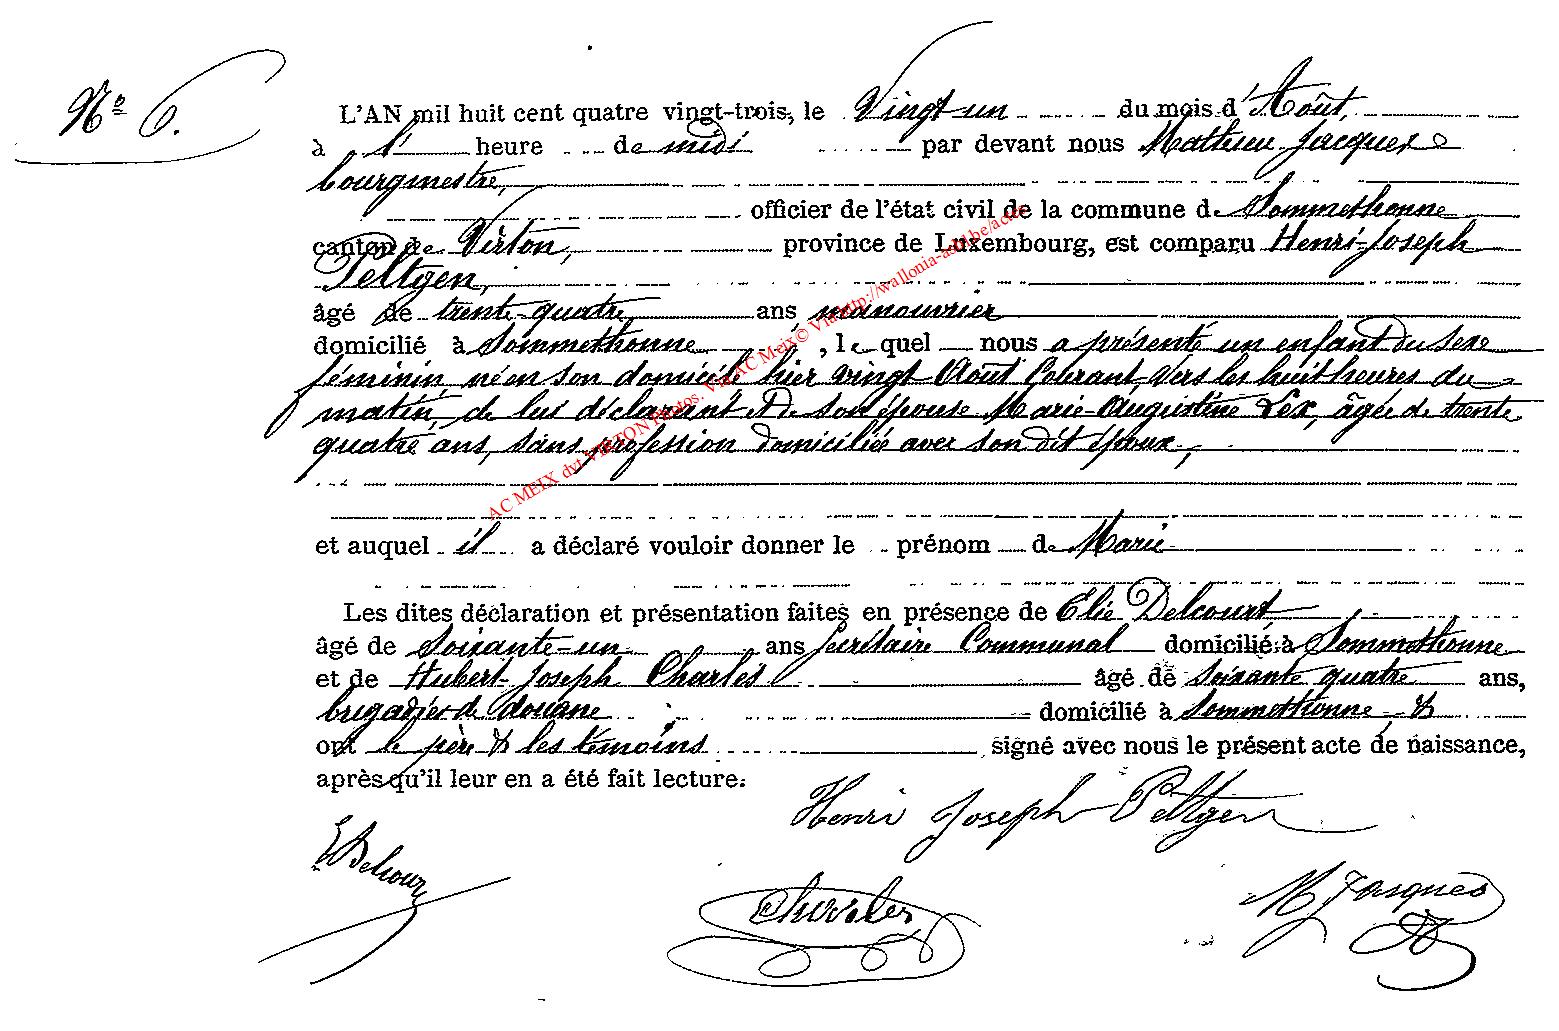 Nº 6.
L'AN mil huit cent quatre vingt-trois, le Vingt-un du mois d'Août,
à l' heure de midi par devant nous Mathieu Jacques
bourgmestre,
officier de l'état civil de la commune de Sommethonne
canton de Virton, province de Luxembourg, est comparu Henri-Joseph
Peltgen,
âgé de trente-quatre ans manouvrier
domicilié à Sommethonne, lequel nous a présenté un enfant du sexe
féminin, né en son domicile hier vingt Août Courant, vers les huit heures du
matin, de lui déclarant et de son épouse Marie-Augustine Lex, âgée de trente
quatre ans, sans profession domiciliée avec son dit époux,
et auquel il a déclaré vouloir donner le prénom de Marie
Les dites déclaration et présentation faites en présence de Elie Delcourt
âgé de Soixante-un ans Secrétaire Communal domicilié à Sommethonne
et de Hubert-Joseph Charles âgé de soixante quatre ans,
brigadier de douane domicilié à Sommethonne, &
ont le père & les témoins signé avec nous le présent acte de naissance,
après qu'il leur en a été fait lecture.
Henri Joseph Peltgen
E Delcour
Charles
M Jacques
AC MEIX dvt VIRTON Photos. Via AC Meix© Via http://wallonia-asbl.be/actes